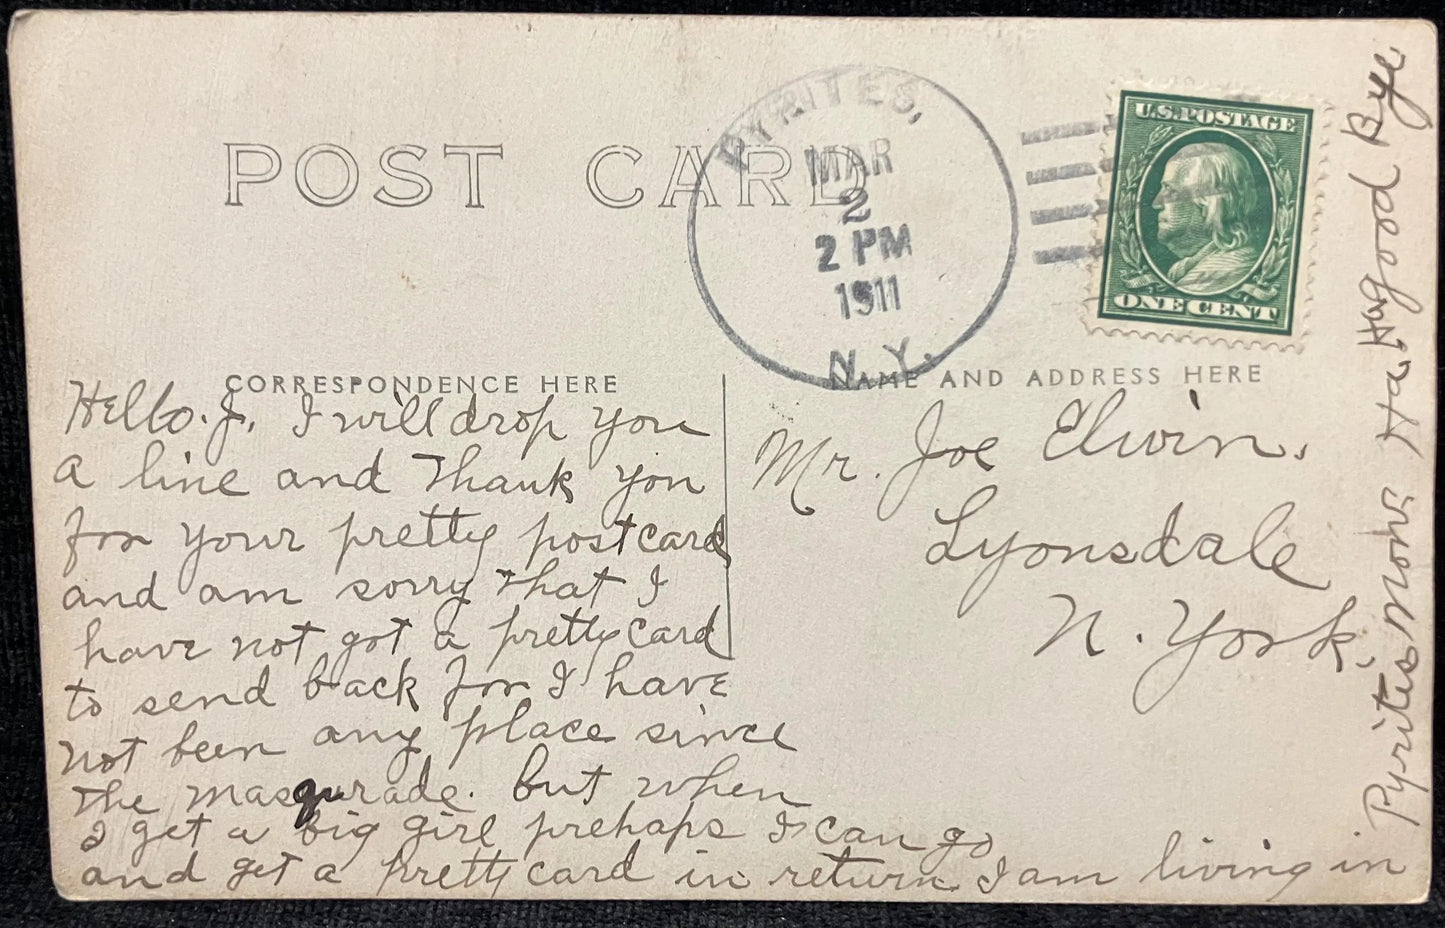 POST CARD
PYRITES,
MAR
2
2 PM
1911
N.Y.
U.S. POSTAGE
ONE CENT
CORRESPONDENCE HERE
NAME AND ADDRESS HERE
Hello. J. I will drop you
a line and thank you
for your pretty postcard
and am sorry that I
have not got a pretty card
to send back for I have
not been any place since
the masqurade. but when
I get a big girl prehaps I can go
and get a pretty card in return I am living in
Pyrites now. Ha, Ha, good Bye
Mr. Joe Elwin.
Lyonsdale
N. York.